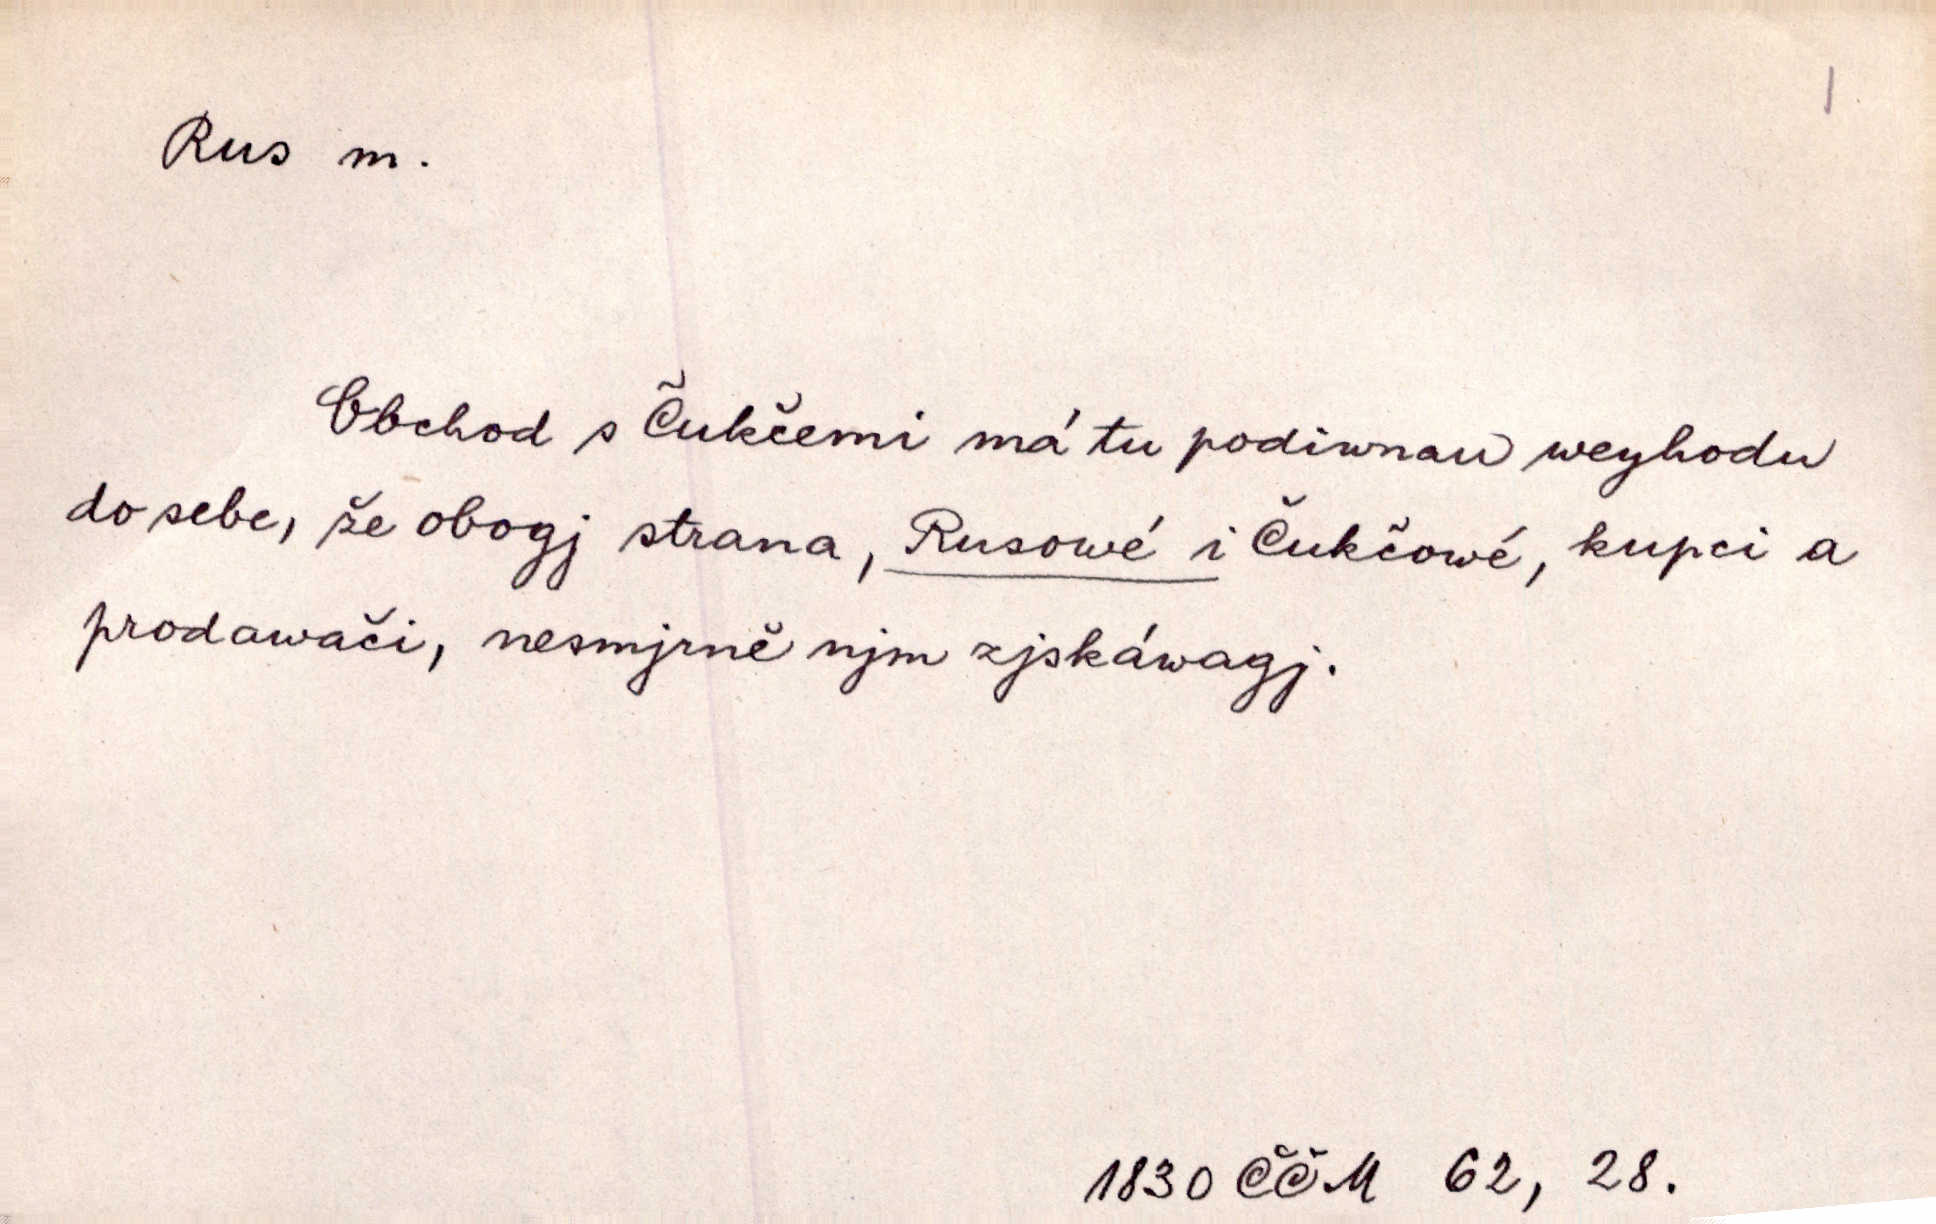 Rus m.
Obchod s Čukčemi má tu podiwnau weyhodu
do sebe, že obogj strana, Rusowé i Čukčowé, kupci a
prodawači, nesmjrně njm zjskáwagj.
1830 ČČM 62, 28.